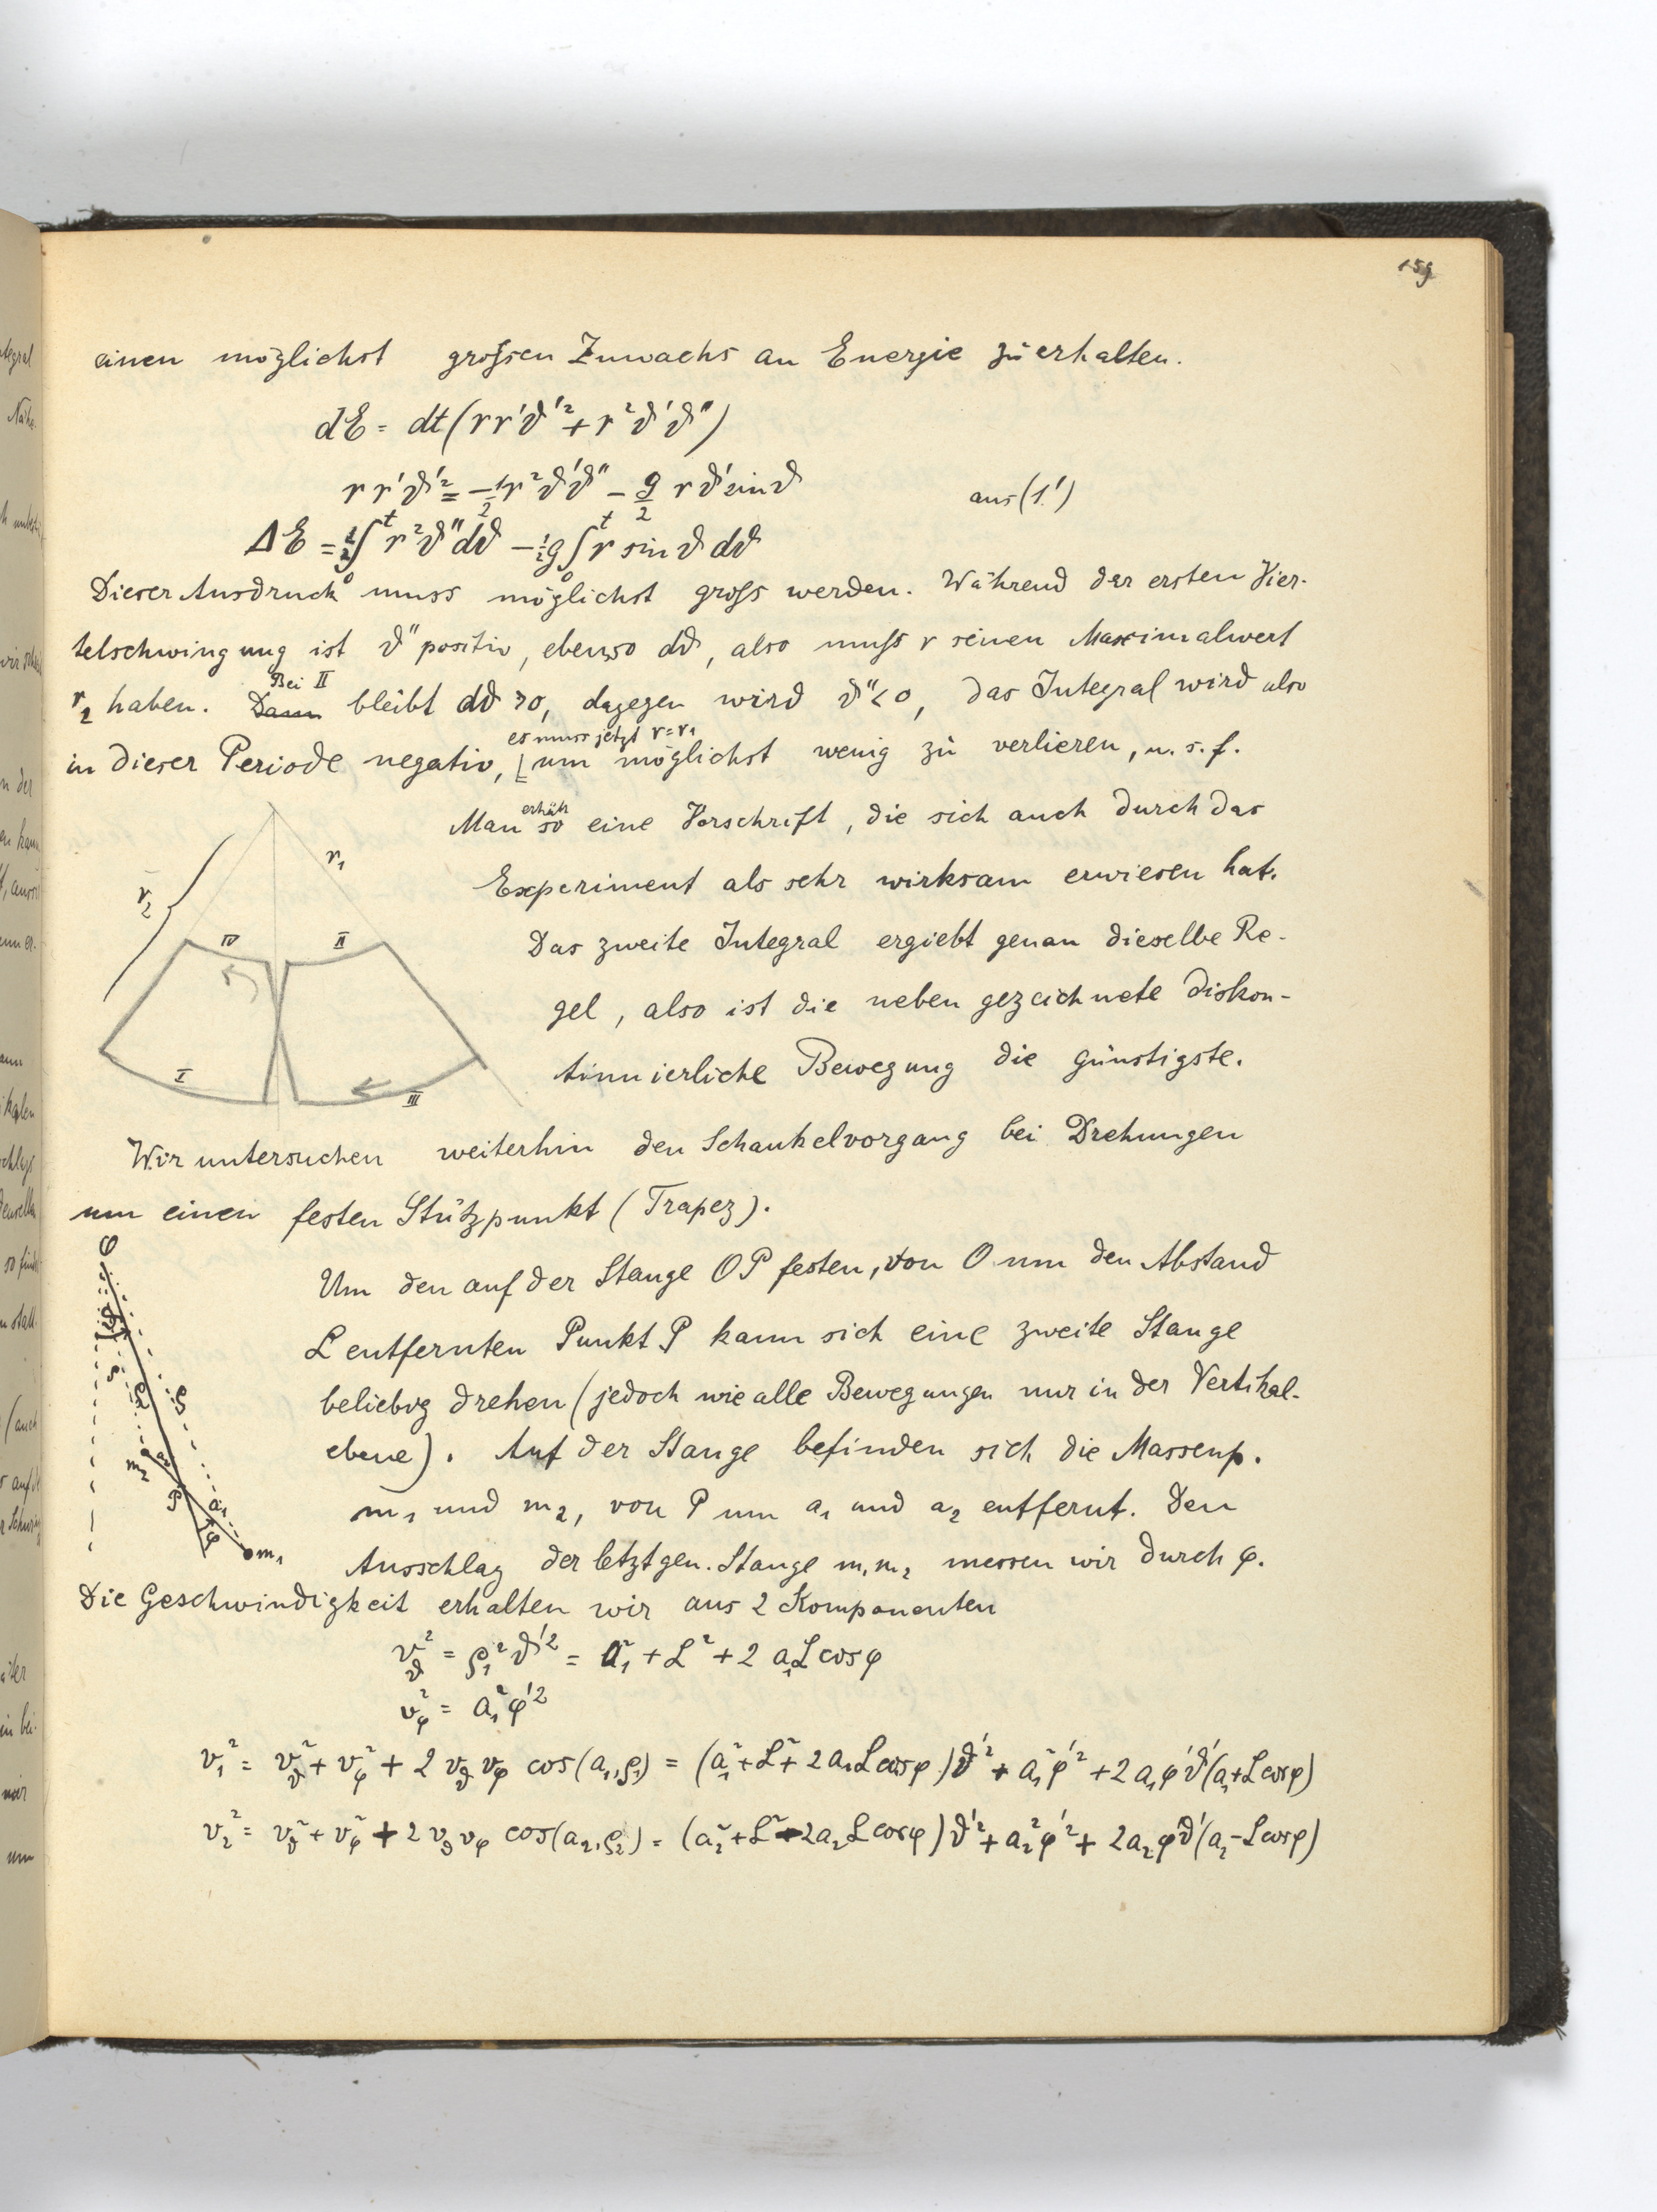 159
einen möglichst großen Zuwachs an Energie zu erhalten.
dE = dt (r r' ϑ'² + r² ϑ' ϑ'')
r r' ϑ'² = -1/2 r² ϑ' ϑ'' - g/2 r ϑ' sin ϑ aus (1')
ΔE = 1/2 ∫₀ᵗ r² ϑ'' dϑ - 1/2 g ∫₀ᵗ r sin ϑ dϑ
Dieser Ausdruck muss möglichst groß werden. Während der ersten Vier-
telschwingung ist ϑ'' positiv, ebenso dϑ, also muß r seinen Maximalwert
r₂ haben. Dann Bei II bleibt dϑ > 0, dagegen wird ϑ'' < 0, das Integral wird also
in dieser Periode negativ, es muss jetzt r = r₁ um möglichst wenig zu verlieren, u. s. f.
Man erhält so eine Vorschrift, die sich auch durch das
Experiment als sehr wirksam erwiesen hat.
Das zweite Integral ergiebt genau dieselbe Re-
gel, also ist die neben gezeichnete diskon-
tinuierliche Bewegung die günstigste.
r₂
r₁
IV
II
I
III
Wir untersuchen weiterhin den Schaukelvorgang bei Drehungen
um einen festen Stützpunkt (Trapez).
Um den auf der Stange OP festen, von O um den Abstand
L entfernten Punkt P kann sich eine zweite Stange
beliebig drehen (jedoch wie alle Bewegungen nur in der Vertikal-
ebene). Auf der Stange befinden sich die Massenp.
m₁ und m₂, von P um a₁ und a₂ entfernt. Den
Ausschlag der letztgen. Stange m₁m₂ messen wir durch φ.
O
ϑ
L
m₂
a₂
P
a₁
φ
m₁
Die Geschwindigkeit erhalten wir aus 2 Komponenten
v_ϑ² = ρ₁² ϑ'² = a₁² + L² + 2 a₁ L cos φ
v_φ² = a₁² φ'²
v₁² = v_ϑ² + v_φ² + 2 v_ϑ v_φ cos (a₁, ρ₁) = (a₁² + L² + 2 a₁ L cos φ) ϑ'² + a₁² φ'² + 2 a₁ φ' ϑ' (a₁ + L cos φ)
v₂² = v_ϑ² + v_φ² + 2 v_ϑ v_φ cos (a₂, ρ₂) = (a₂² + L² - 2 a₂ L cos φ) ϑ'² + a₂² φ'² + 2 a₂ φ' ϑ' (a₂ - L cos φ)